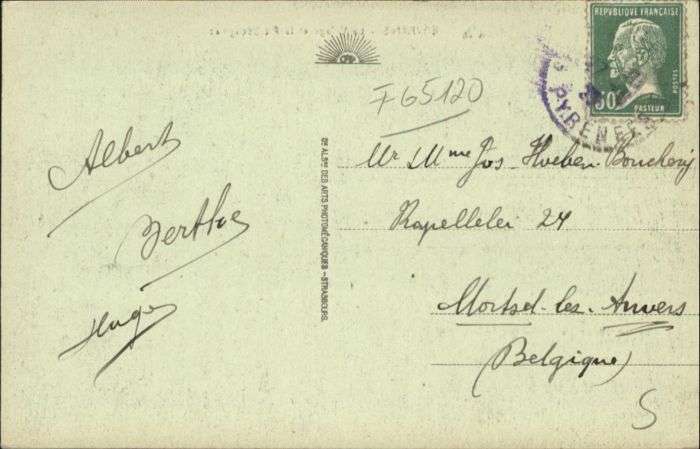 RÉPUBLIQUE FRANÇAISE
POSTES
50c
PASTEUR
PYRÉNÉES
F65120
Albert
Berthe
Hugo
Cie ALSnne DES ARTS PHOTOMÉCANIQUES - STRASBOURG.
Mr Mme Jos Hoeben-
Kapellelei 24
Mortsel-lez-Anvers
(Belgique)
S